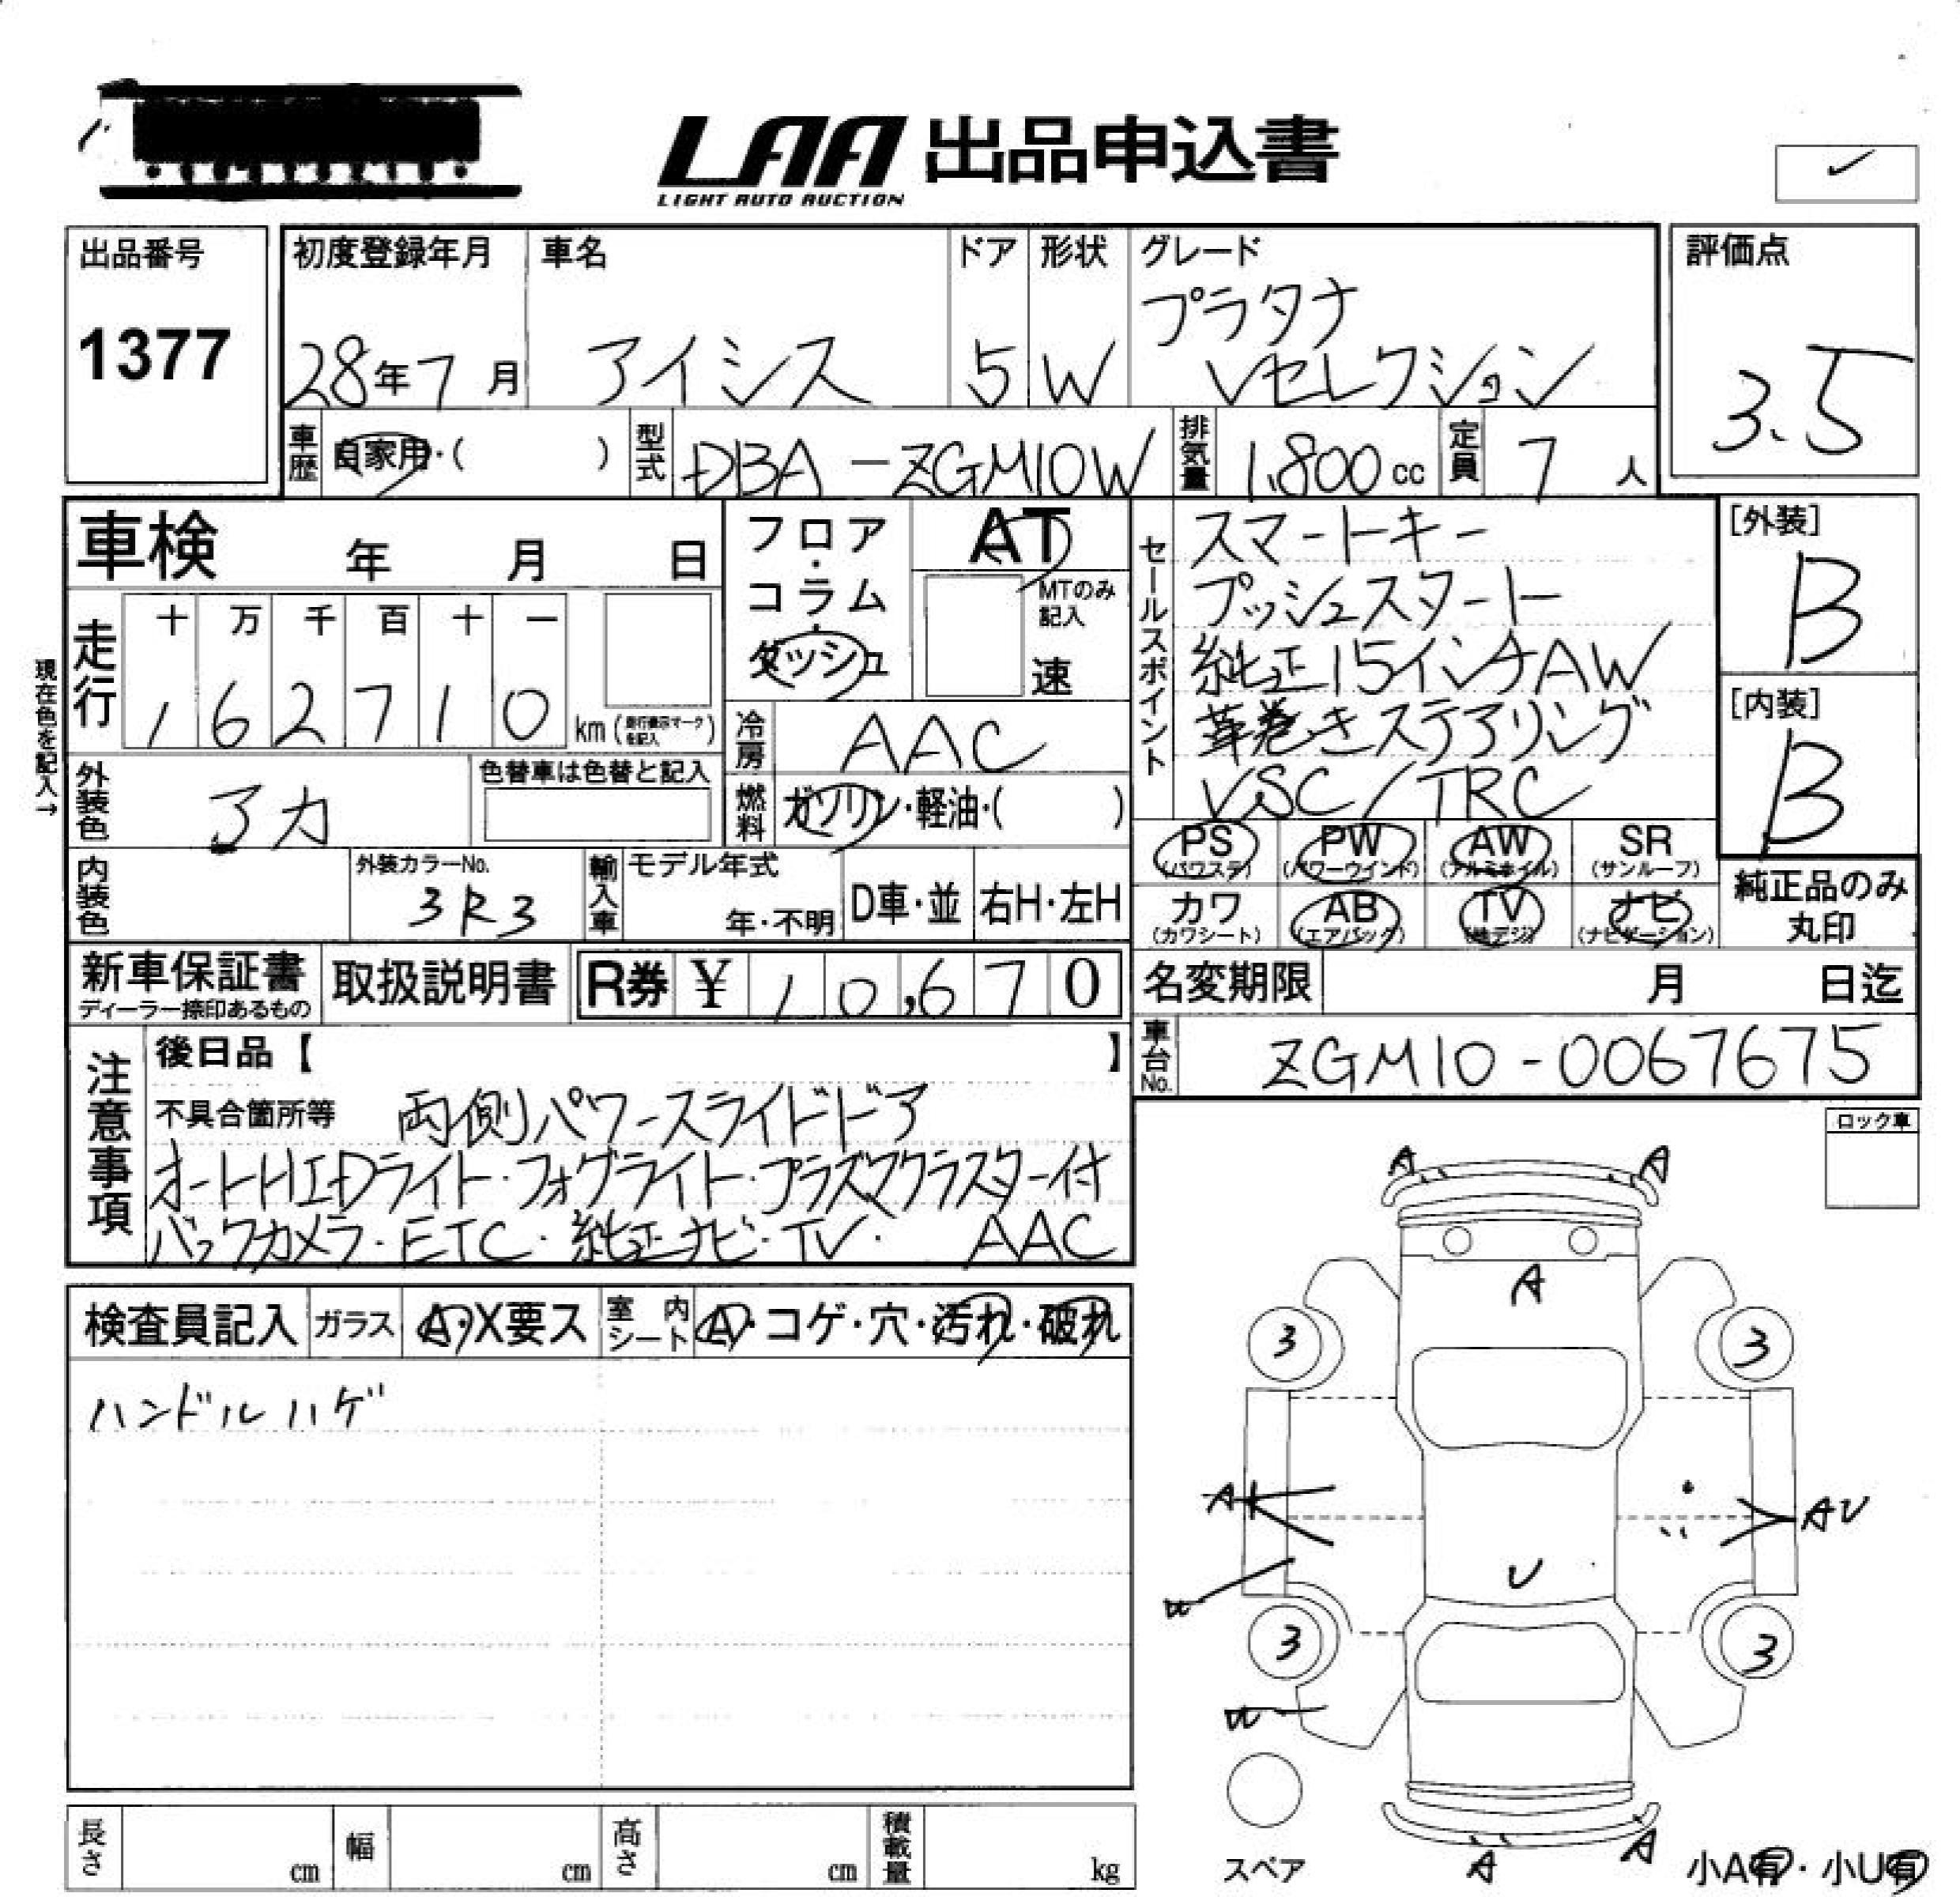 LAA 出品申込書
LIGHT AUTO AUCTION
出品番号
1377
初度登録年月
28年7月
車名
アイシス
ドア
5
形状
W
グレード
プラタナ
Vセレクション
評価点
3.5
車歴
自家用・( )
型式
DBA-ZGM10W
排気量
1,800 cc
定員
7人
車検 年 月 日
フロア・コラム・ダッシュ
AT
MTのみ記入
速
セールスポイント
スマートキー
プッシュスタート
純正15インチAW
革巻きステアリング
VSC/TRC
[外装]
B
[内装]
B
現在色を記入→
走行
十 万 千 百 十 一
1 6 2 7 1 0 km
冷房
AAC
外装色
アカ
色替車は色替と記入
燃料
ガソリン・軽油・( )
内装色
外装カラーNo.
3R3
輸入車
モデル年式
年・不明
D車・並
右H・左H
PS (パワステ)
PW (パワーウインド)
AW (アルミホイル)
SR (サンルーフ)
カワ (カワシート)
AB (エアバック)
TV (地デジ)
ナビ (ナビゲーション)
純正品のみ丸印
新車保証書
ディーラー捺印あるもの
取扱説明書
R券 ¥10,670
名変期限 月 日迄
車台No.
ZGM10-0067675
注意事項
後日品【 】
不具合箇所等 両側パワースライドドア
オートHIDライト・フォグライト・プラズマクラスター付
バックカメラ・ETC・純正ナビ・TV・ AAC
ロック車
検査員記入
ガラス
A・X要ス
室内シート
A・コゲ・穴・汚れ・破れ
ハンドルハゲ
A A
A
3 3
A AU
U
3 3
A A
スペア
小A有・小U有
長さ cm
幅 cm
高さ cm
積載量 kg